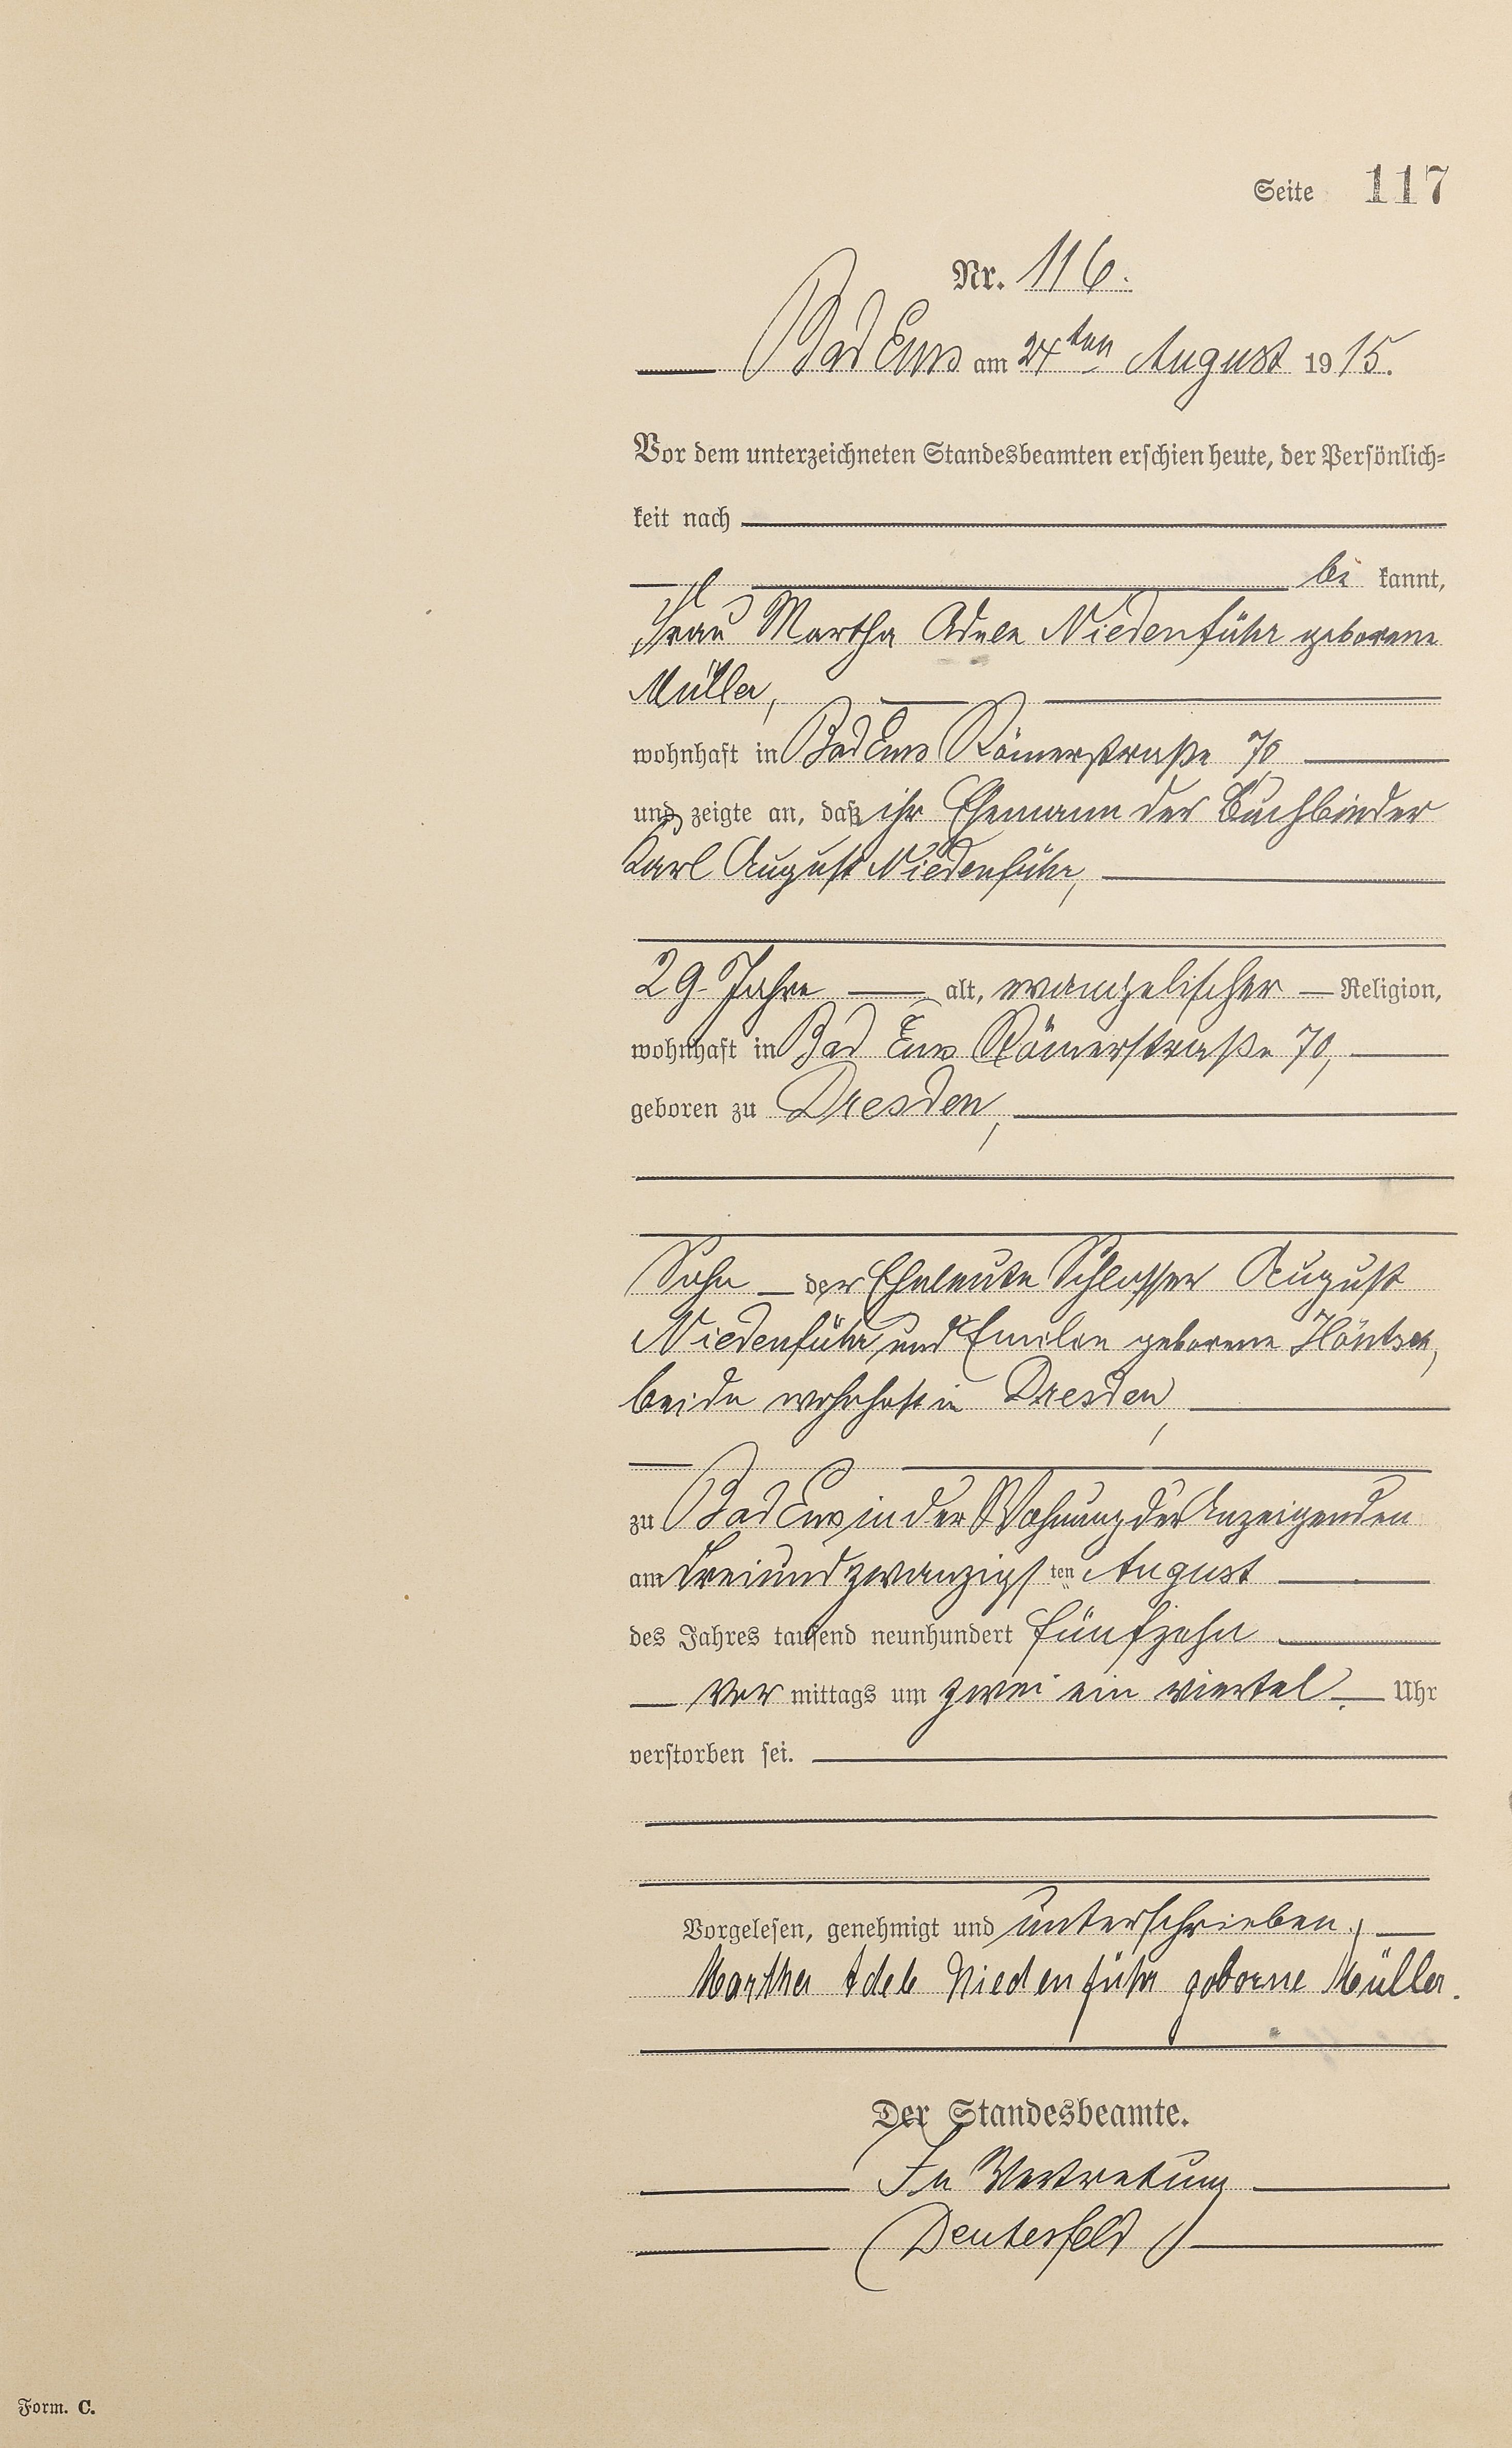 Seite 117
Nr. 116.
Bad Ems am 24ten August 1915.
Vor dem unterzeichneten Standesbeamten erschien heute, der Persönlich-
keit nach
be kannt,
Frau Martha Adele Niedenführ geborene
Müller,
wohnhaft in Bad Ems Römerstraße 70
und zeigte an, daß ihr Ehemann der Buchbinder
Karl August Niedenführ,
29 Jahre alt, evangelischer Religion,
wohnhaft in Bad Ems Römerstraße 70,
geboren zu Dresden,
Sohn der Eheleute Schlosser August
Niedenführ und Emilie geborene
beide wohnhaft in Dresden,
zu Bad Ems in der Wohnung der Anzeigenden
am dreiundzwanzigsten August
des Jahres tausend neunhundert fünfzehn
Vor mittags um zwei ein viertel Uhr
verstorben sei.
Vorgelesen, genehmigt und unterschrieben.
Martha Adele Niedenführ geborne Müller.
Der Standesbeamte.
In Vertretung
Form. C.